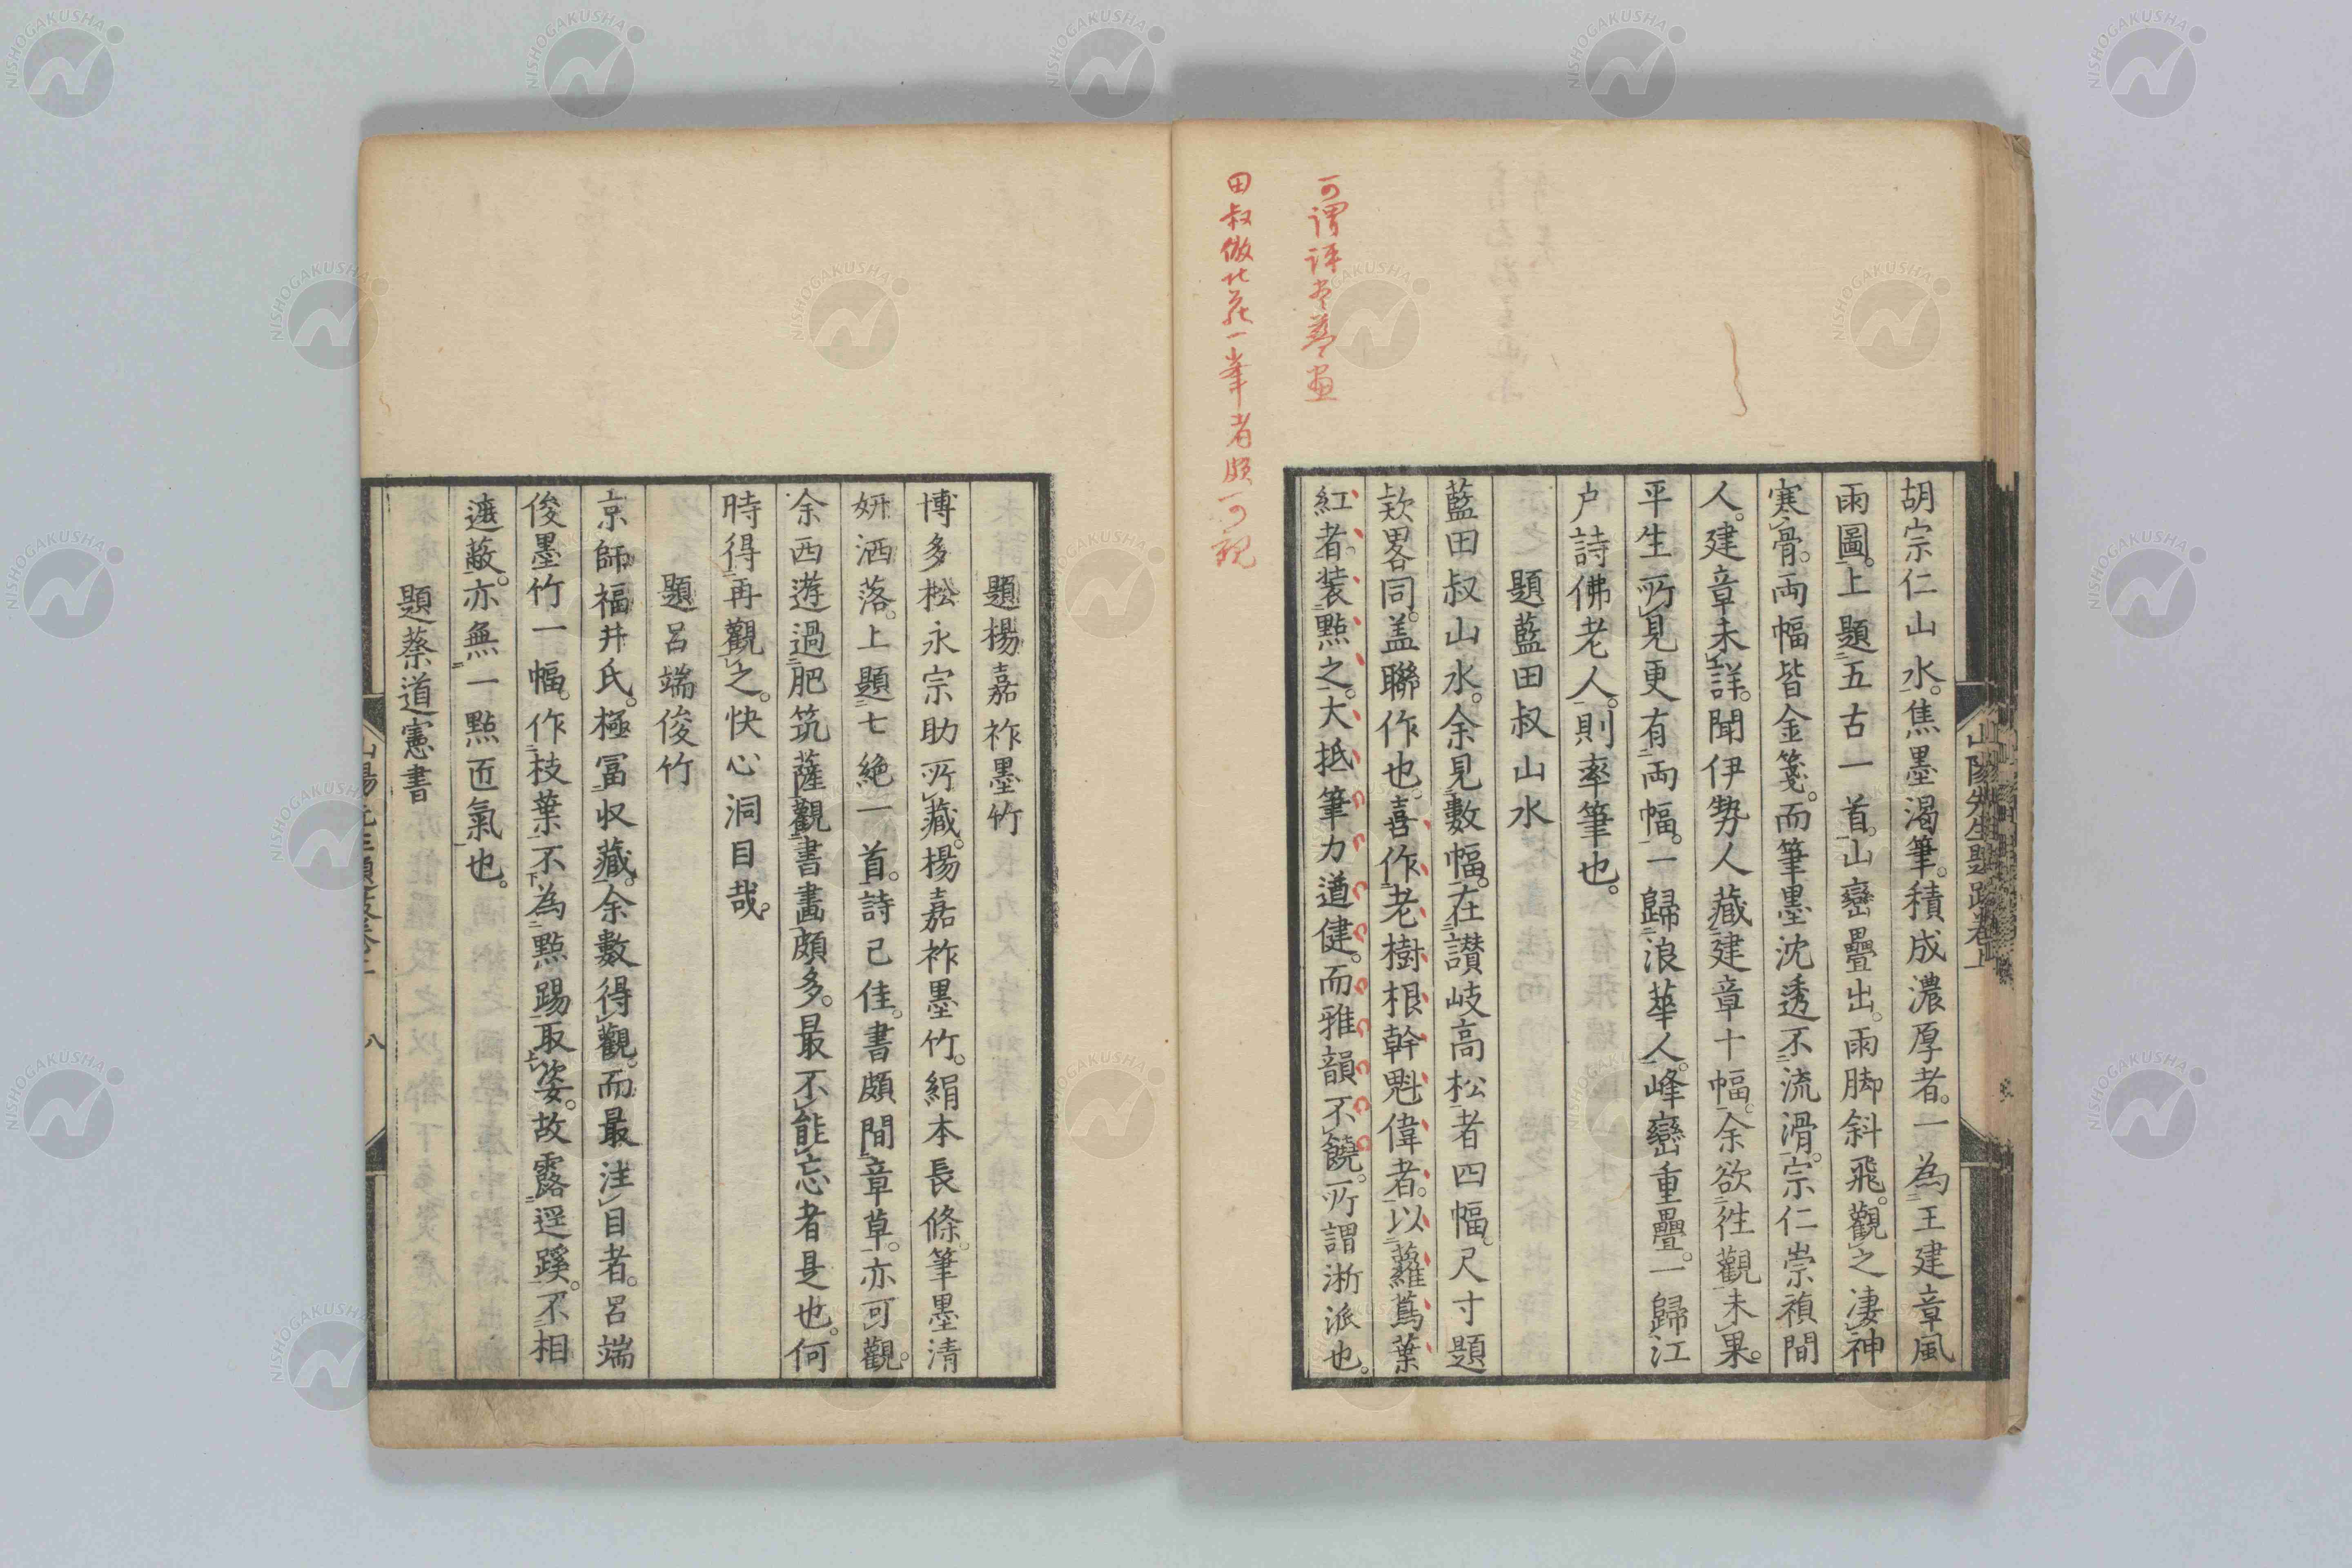 可謂評尽藍畫
田叔倣北苑一峯者頗可観
胡宗仁山水。焦墨渴筆。積成濃厚者。一為王建章風
雨圖。上題五古一首。山巒疊出。雨脚斜飛。觀之凄神
寒骨。両幅皆金箋。而筆墨沈透不流滑。宗仁崇禎間
人。建章未詳。聞伊勢人藏建章十幅。余欲往觀未果。
平生所見更有両幅。一歸浪華人。峰巒重疊。一歸江
户詩佛老人。則率筆也。
題藍田叔山水
藍田叔山水。余見數幅。在讃岐高松者四幅。尺寸題
欵畧同。盖聯作也。喜作老樹根幹魁偉者。以蘿蔦葉
紅者。装點之。大抵筆力遒健。而雅韻不饒。所謂淅派也。
山陽先生題跋卷上
題楊嘉祚墨竹
博多松永宗助所藏。楊嘉祚墨竹。絹本長條。筆墨清
妍洒落。上題七絶一首。詩已佳。書頗間章草。亦可觀。
余西遊過肥筑薩觀書畫頗多。最不能忘者是也。何
時得再觀之。快心洞目哉。
題呂端俊竹
京師福井氏。極富收藏。余數得觀。而最注目者。呂端
俊墨竹一幅。作枝葉不為點踢取姿。故露逕蹊。不相
遮蔽。亦無一點匠氣也。
題蔡道憲書
八